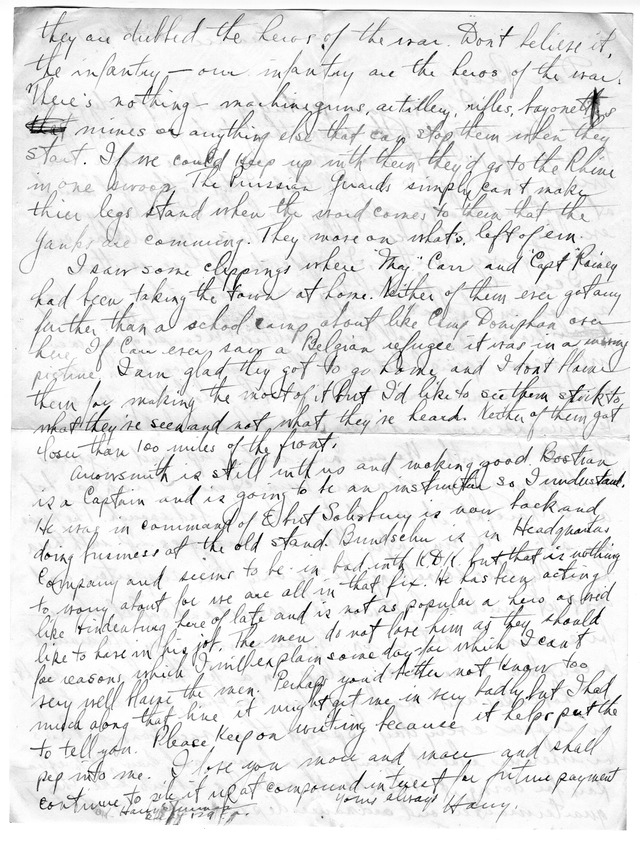 they are dubbed the heros of the war. Dont believe it,
the infantry – our infantry are the heros of the war.
There's nothing – machineguns, artillery, rifles, bayonets
mines or anything else that can stop them when they
start. If we could keep up with them they'd go to the Rhine
in one swoop. The Prussian Guards simply can't make
thier legs stand when the word comes to them that the
Yanks are comming. They move on what's left of em.
I saw some clippings where "Maj." Carr and "Capt" Rainey
had been taking the town at home. Neither of them ever got any
further than a school camp about like Camp Doniphan over
here. If Carr every saw a Belgian refugee it was in a moving
picture. I am glad they got to go home and I dont blame
them for making the most of it but I'd like to see them stick to
what they've seen and not what they've heard. Neither of them got
closer than 100 miles of the front.
Arrowsmith is still with us and making good. Bostian
is a Captain and is going to be an instructor so I understand.
He was in command of E but Salisbury is now back and
doing business at the old stand. Bundschu is in Headquarters
Company and seems to be in bad with K.D.K. but that is nothing
to worry about for we are all in that fix. He has been acting
like Hindenburg here of late and is not as popular a hero as he'd
like to have in his job. The men do not love him as they should
for reasons which I will explain some day for which I can't
very well blame the men. Perhaps you'd better not know too
much along that line it might get me in very badly but I had
to tell you. Please keep on writing because it helps put the
pep into me. I love you more and more and shall
continue to pile it up at compound interest for future payment
Yours always
Harry.
Harry S Truman